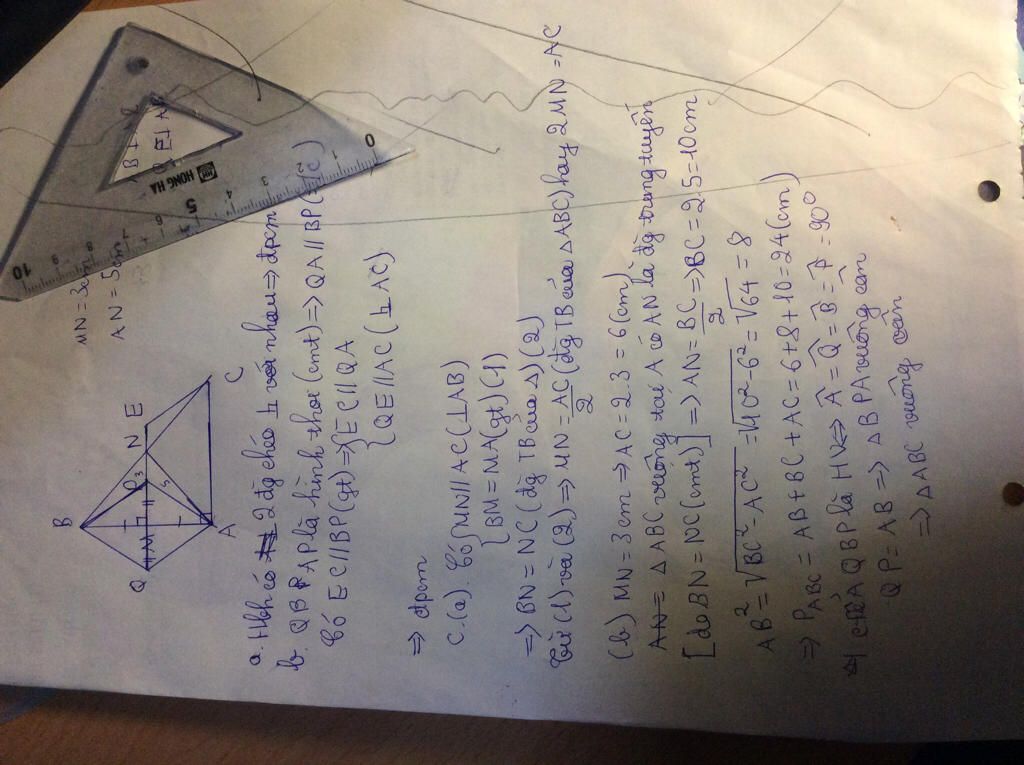 B
Q
M
P
N
E
A
C
3
5
MN = 3cm
AN = 5cm
HONG HA
0 1 2 3 4 5 6 7 8 9 10
a. Hbh có 2 đg chéo ⊥ với nhau => đpcm
b. QBPAP là hình thoi (cmt) => QA // BP
Có EC // BP (gt) => { EC // QA
{ QE // AC (⊥ AC)
=> đpcm
C. (a). Có { MN // AC (⊥AB)
{ BM = MA (gt) (1)
=> BN = NC (đg TB của Δ) (2)
Từ (1) và (2) => MN = AC/2 (đg TB của ΔABC) hay 2MN = AC
(b) MN = 3cm => AC = 2.3 = 6 (cm)
AN = ΔABC vuông tại A có AN là đg trung tuyến
[do BN = NC (cmt)] => AN = BC/2 => BC = 2.5 = 10cm
AB² = √BC² - AC² = √10² - 6² = √64 = 8
=> P_ABC = AB + BC + AC = 6 + 8 + 10 = 24 (cm)
để AQBP là HV <=> Â = Q̂ = B̂ = P̂ = 90°
QP = AB => ΔBPA vuông cân
=> ΔABC vuông cân